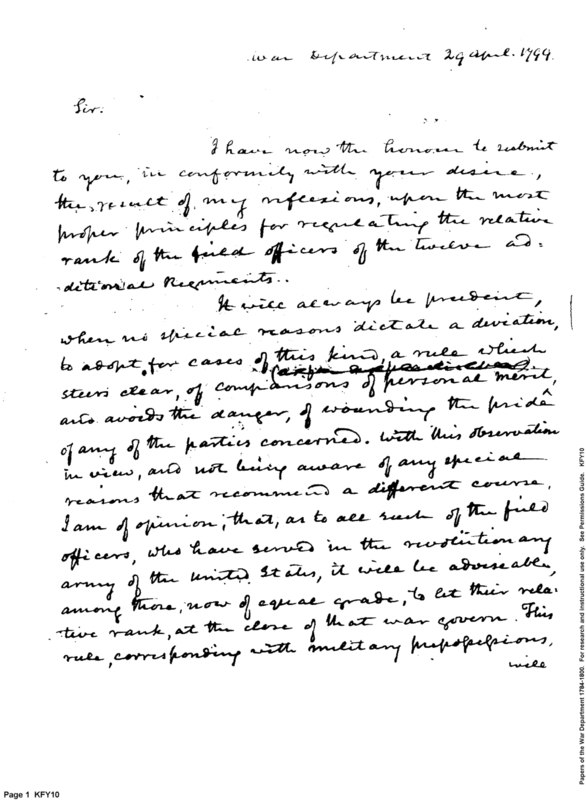 War Department 29 April. 1799.
Sir.
I have now the honour to submit
to you, in conformity with your desire,
the result of my reflexions, upon the most
proper principles for regulating the relative
rank of the field officers of the twelve ad=
ditional Regiments..
It will always be prudent,
when no special reasons dictate a deviation,
to adopt, for cases of this kind, a rule which
steers clear, of comparisons of personal merit,
and avoids the danger, of wounding the pride
of any of the parties concerned. With this observation
in view, and not being aware of any special
reasons that recommend a different course,
I am of opinion, that, as to all such of the field
officers, who have served in the revolutionary
army of the United States, it will be adviseable,
among those, now of equal grade, to let their rela=
tive rank, at the close of that war govern. This
rule, corresponding with military prepossessions,
will
Page 1 KFY10
Papers of the War Department 1784-1800. For research and instructional use only. See Permissions Guide. KFY10